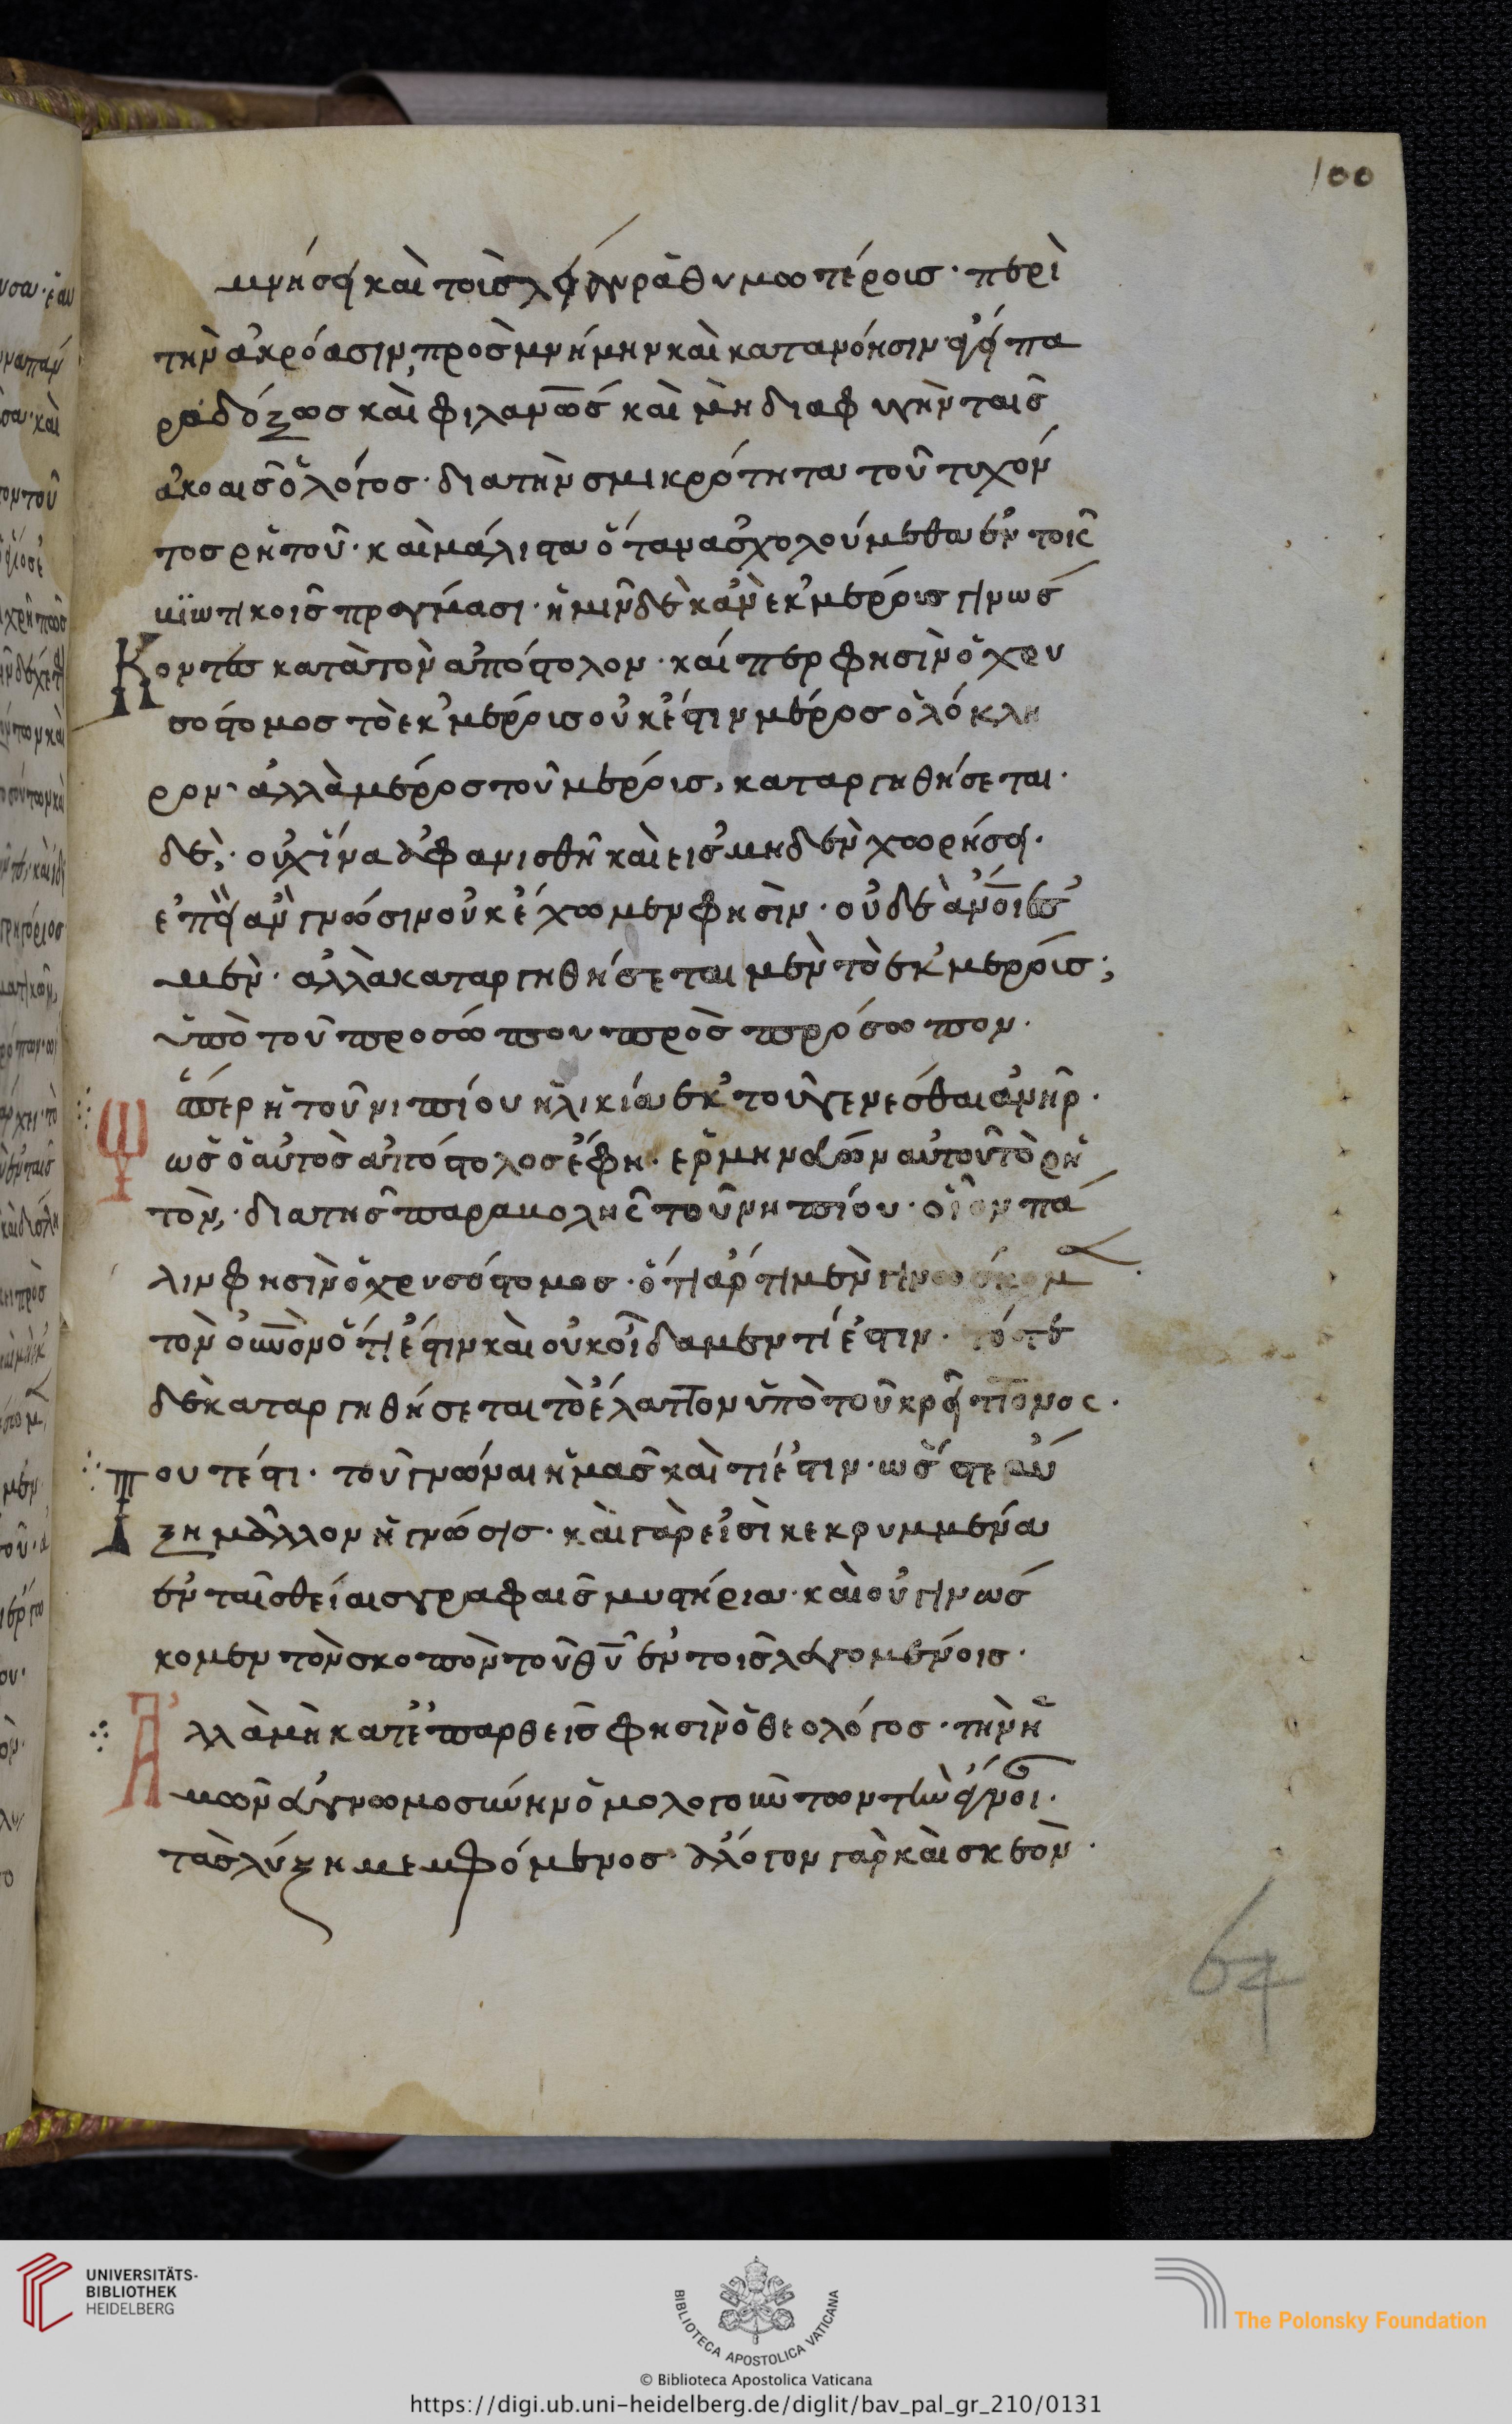 100
μνήσει καὶ τοῖς λίαν ῥαθυμωτέροις· περὶ
τὴν ἀκρόασιν, προς μνήμην καὶ κατανόησιν εἰ πα
ραδόξως καὶ φιλανῶς καὶ μὴ διαφυγὴν ταῖς
ἀκοαῖς ὁ λόγος· δια τὴν σμικρότητα τοῦ τυχόν
τος ρητοῦ· καὶ μάλιστα ὅταν ἀσχολούμεθα ἐν τοῖς
βϊωτικοῖς πράγμασι· ἡμῖν δὲ κἂν ἐκ μέρους γινώσ
Κοντες κατὰ τὸν ἀπόστολον· καίπερ φησὶν ὁ χρυ
σόστομος τὸ ἐκ μέρους οὐκ ἔστιν μέρος ὁλόκλη
ρον· ἀλλὰ μέρος τοῦ μέρους, καταργηθήσεται·
δὲ, οὐχ ἵνα ἀφανισθῆ καὶ εἰς μηδὲν χωρήσει·
ἐπεὶ ἂν γνῶσιν οὐκ ἔχωμεν φησὶν· οὐδὲ ἄνοι ἐσ
μὲν· ἀλλὰ καταργηθήσεται μὲν τὸ ἐκ μέρους;
ὑπὸ τοῦ προσώπου πρὸς πρόσωπον·
Ὥσπερ ἡ τοῦ νιπίου ἡλικία ἐκ τοῦ γενέσθαι ἀνήρ·
ὡς ὁ αὐτὸς ἀπόστολος ἔφη· ἑρμηνεύων αὐτοῦ τὸ ρη
τὸν, δια τῆς παραβολῆς τοῦ νηπίου· οἷον πά
λιν φησὶν ὁ χρυσόστομος· ὅτι ἄρτι μὲν γινώσκομ
τὸν οὐνὸν ὅτι ἔστιν καὶ οὐκ οἴδαμεν τί ἔστιν· τότε
δὲ καταργηθήσεται τὸ ἔλαττον ὑπὸ τοῦ κρείττονος·
Τουτέστι· τοῦ γνῶναι ἡμᾶς καὶ τί ἔστιν· ὥστε αὔ
ξη μᾶλλον ἡ γνῶσις· καὶ γὰρ εἰσὶ κεκρυμμένα
ἐν ταῖς θείαις γραφαῖς μυστήρια· καὶ οὐ γινώσ
κομεν τὸν σκοπὸν τοῦ θῦ ἐν τοῖς λεγομένοις·
Ἀλλὰ μὴ κατεπαρθεὶς φησὶν ὁ θεολόγος· τὴν ἡ
μῶν ἀγνωμοσύνην ὁμολογούντων τὴν
τάσλύξη μεμφόμενος ἄλογον γὰρ καὶ σκεὸν·
64
UNIVERSITÄTS-
BIBLIOTHEK
HEIDELBERG
BIBLIOTECA APOSTOLICA VATICANA
The Polonsky Foundation
© Biblioteca Apostolica Vaticana
https://digi.ub.uni-heidelberg.de/diglit/bav_pal_gr_210/0131